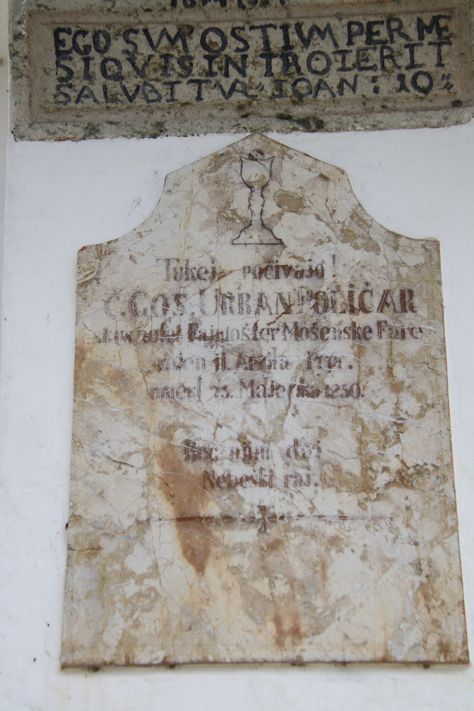 EGO SVM OSTIVM PER ME
SI QVIS INTROIERIT
SALVBITVR IOAN: 10
Tukej počivajo!
Č.G.O.S. URBAN POLIČAR
Fajmošter Mošenske Fare
11. Aprila
umerl 23. Majerja 1850.
Bog mu daj
Nebeški raj.